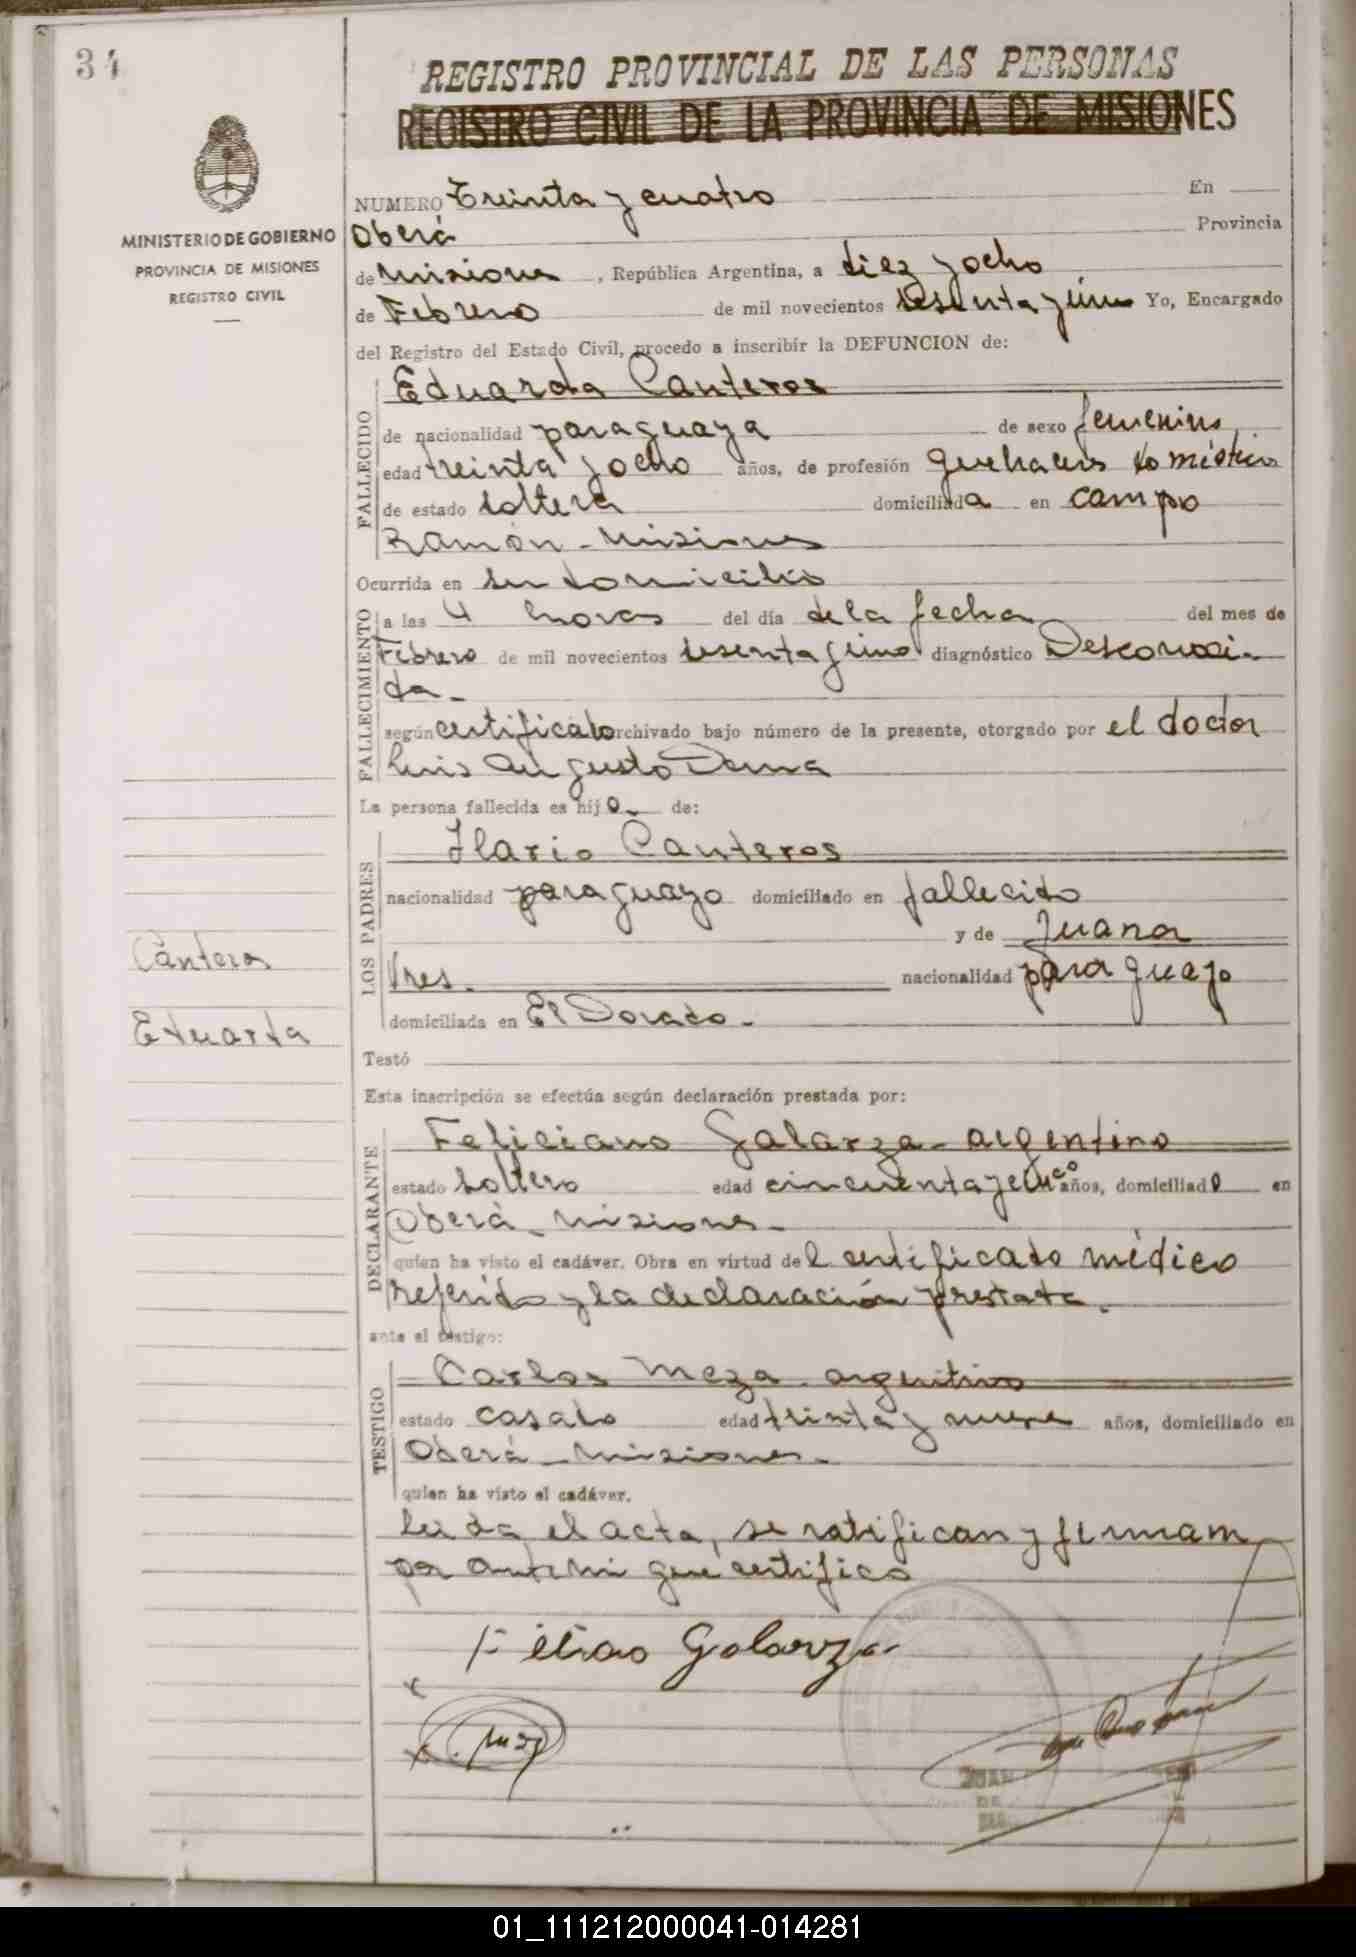 34
REGISTRO PROVINCIAL DE LAS PERSONAS
REGISTRO CIVIL DE LA PROVINCIA DE MISIONES
MINISTERIO DE GOBIERNO
PROVINCIA DE MISIONES
REGISTRO CIVIL
NUMERO Treinta y cuatro En
Oberá Provincia
de Misiones, República Argentina, a diez y ocho
de Febrero de mil novecientos sesenta y uno Yo, Encargado
del Registro del Estado Civil, procedo a inscribir la DEFUNCION de:
FALLECIDO
Eduarda Canteros
de nacionalidad paraguaya de sexo femenino,
edad treinta y ocho años, de profesión quehaceres domésticos
de estado soltera domiciliada en campo
Ramón - Misiones
Ocurrida en su domicilio
FALLECIMIENTO
a las 4 horas del día de la fecha del mes de
Febrero de mil novecientos sesenta y uno diagnóstico Desconoci-
da.-
según certificado archivado bajo número de la presente, otorgado por el doctor
Luis Augusto
La persona fallecida es hija de:
LOS PADRES
Ilario Canteros
nacionalidad paraguayo domiciliado en fallecido
y de Juana
nacionalidad paraguayo
domiciliada en El Dorado.-
Cantero
Eduarda
Testó
Esta inscripción se efectúa según declaración prestada por:
DECLARANTE
Feliciano Galarza - argentino
estado soltero edad cincuenta y cinco años, domiciliado en
Oberá - Misiones.-
quien ha visto el cadáver. Obra en virtud del certificado médico
referido y la declaración prestada.
ante el testigo:
TESTIGO
Carlos Meza - argentino
estado casado edad treinta y nueve años, domiciliado en
Oberá - Misiones.-
quien ha visto el cadáver.
Leida el acta, se ratifican y firman
por ante mi que certifico
Galarza
01_111212000041-014281